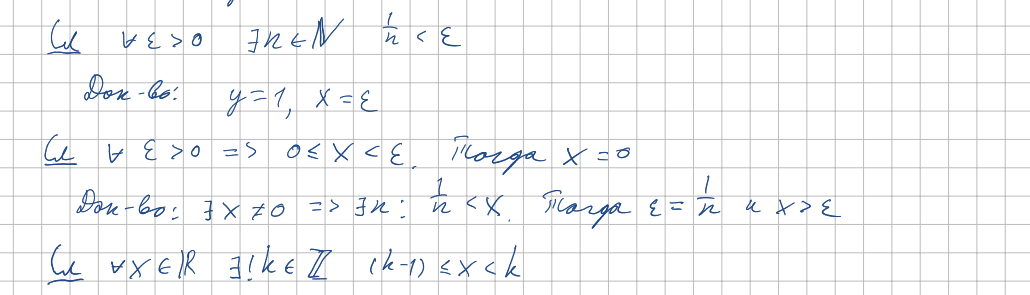 Сл ∀ ε > 0 ∃ n ∈ ℕ 1/n < ε
Док-во: y = 1, x = ε
Сл ∀ ε > 0 => 0 ≤ x < ε. Тогда x = 0
Док-во: ∃ x ≠ 0 => ∃ n: 1/n < x. Тогда ε = 1/n и x > ε
Сл ∀ x ∈ ℝ ∃! k ∈ ℤ (k-1) ≤ x < k